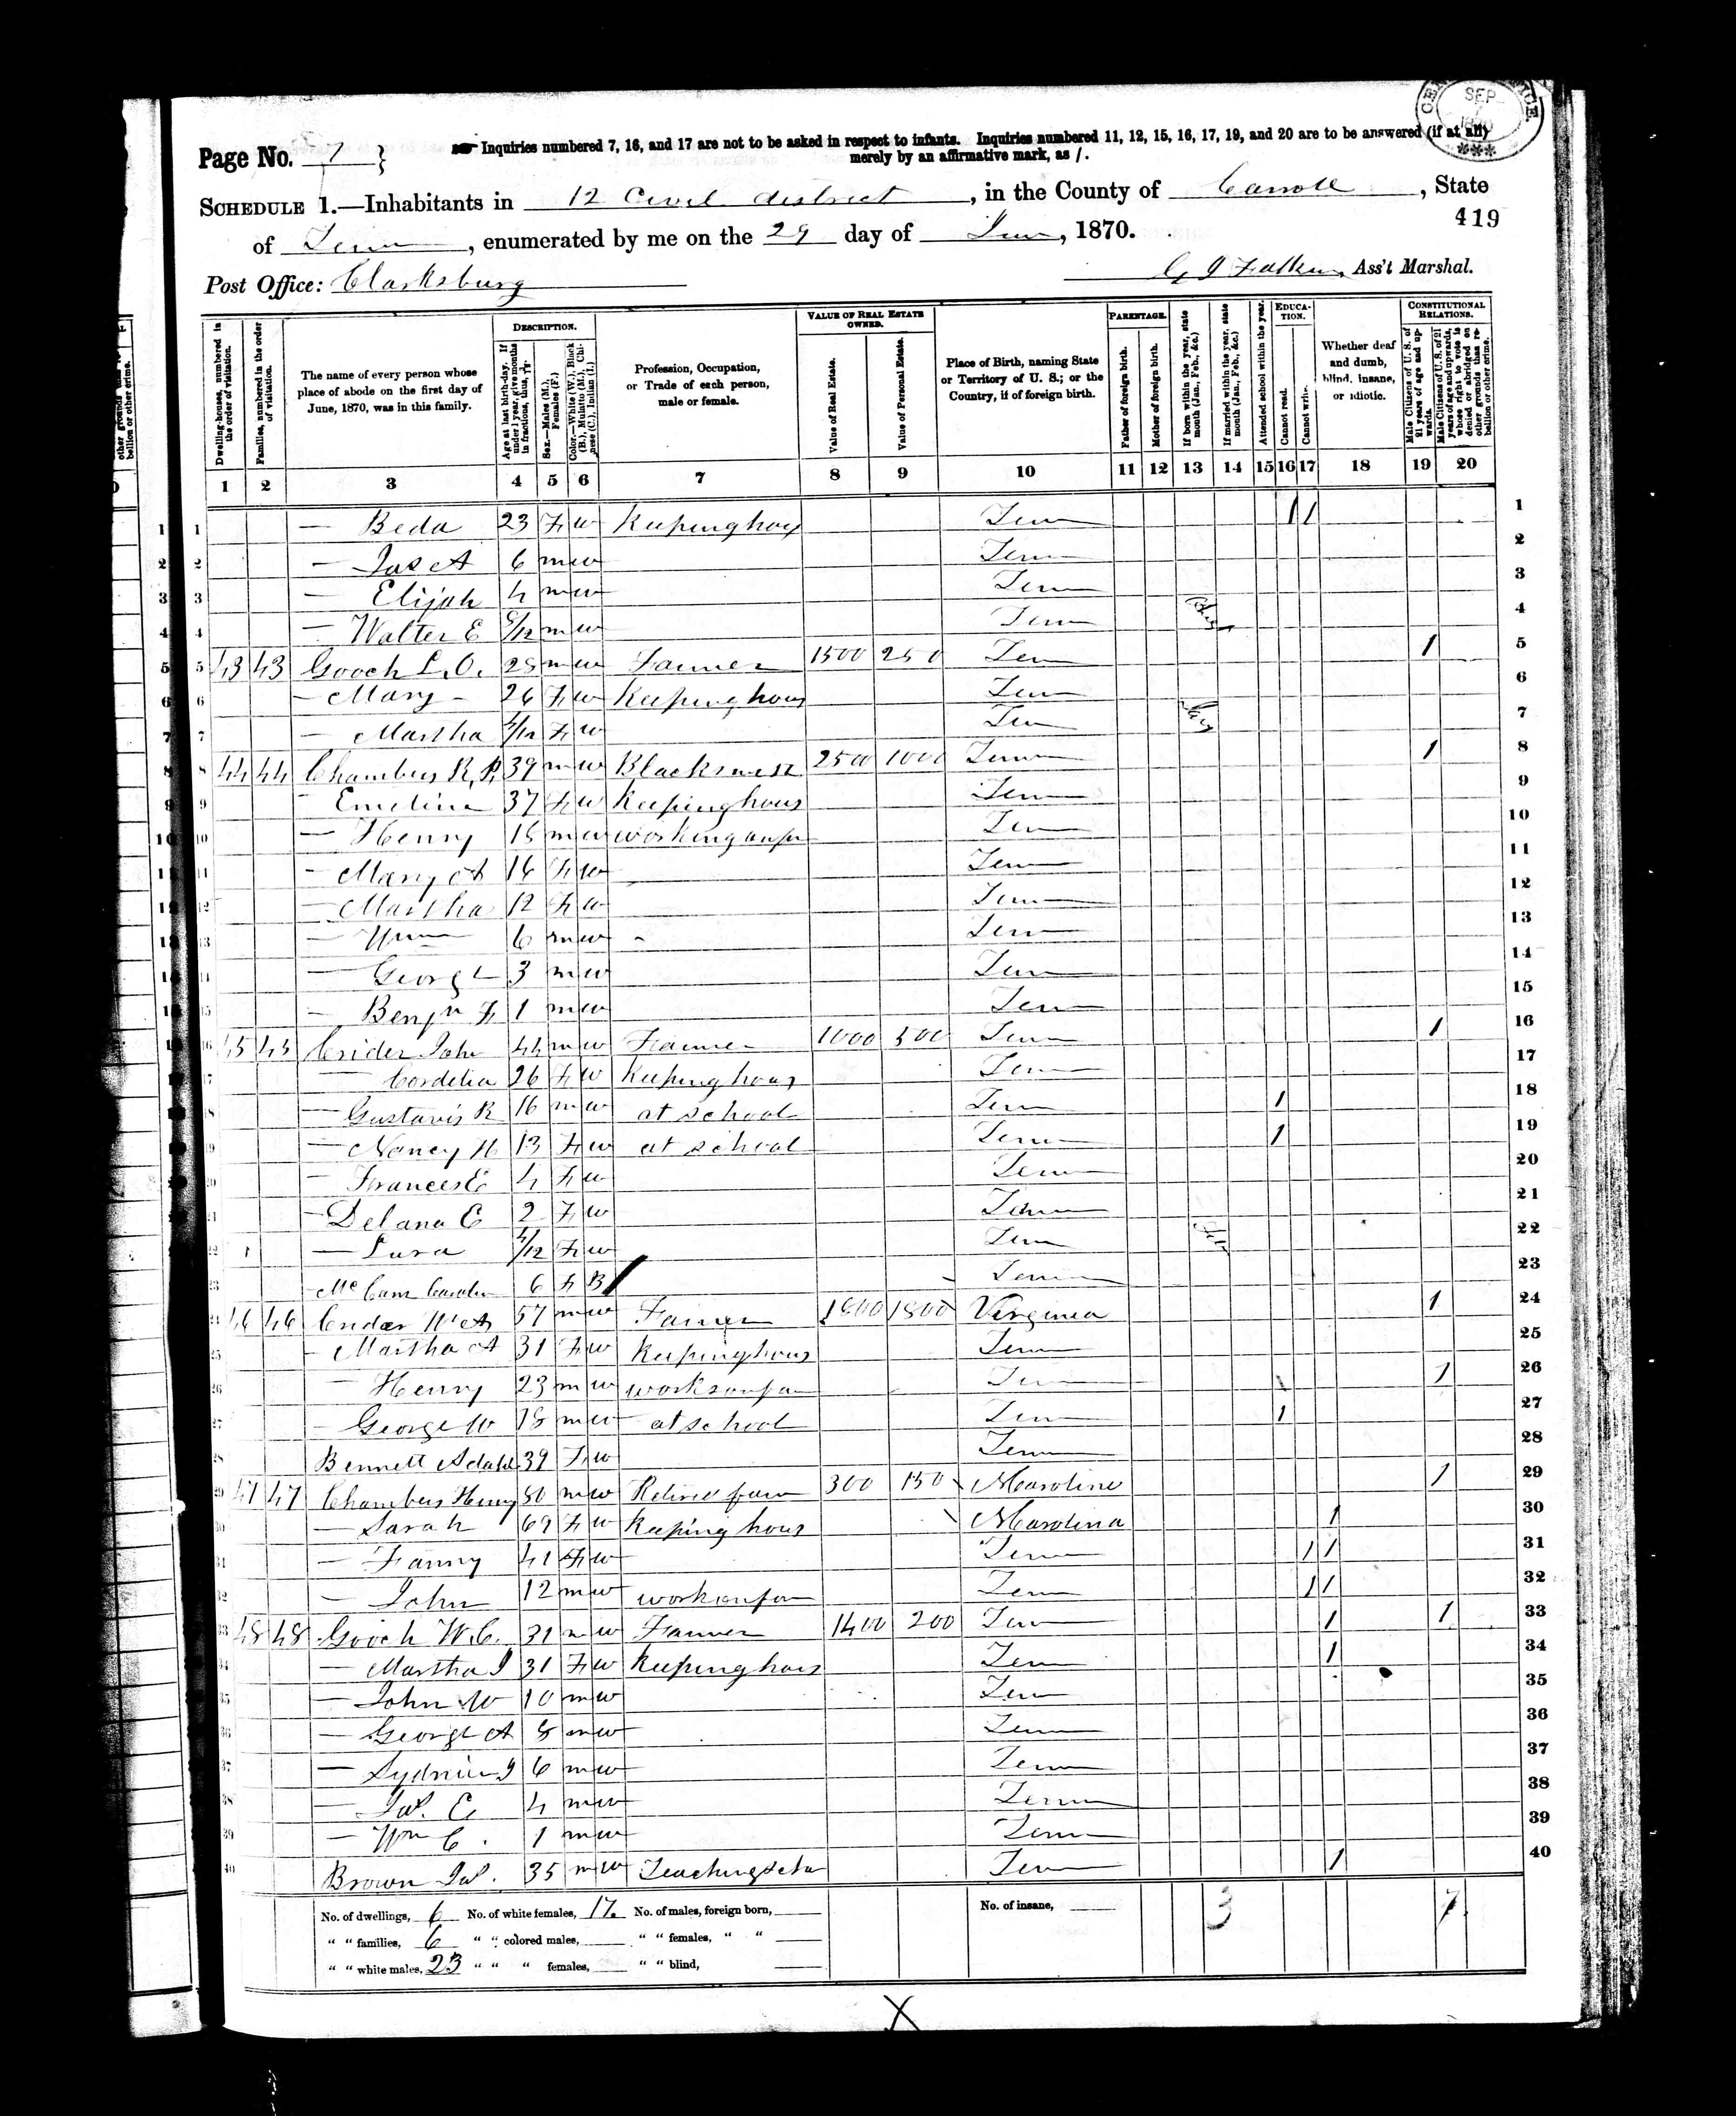 CE ICE SEP 1870
Page No. 7 } Inquiries numbered 7, 16, and 17 are not to be asked in respect to infants. Inquiries numbered 11, 12, 15, 16, 17, 19, and 20 are to be answered (if at all)
merely by an affirmative mark, as /.
SCHEDULE 1.—Inhabitants in 12 Civil district, in the County of Carroll, State
419
of Tenn, enumerated by me on the 29 day of June, 1870.
Post Office: Clarksburg
Ass't Marshal.
Dwelling-houses, numbered in the order of visitation.
Families, numbered in the order of visitation.
The name of every person whose place of abode on the first day of June, 1870, was in this family.
DESCRIPTION.
Age at last birth-day. If under 1 year, give months in fractions, thus, 3/12
Sex.—Males (M.), Females (F.)
Color.—White (W.), Black (B.), Mulatto (M.), Chinese (C.), Indian (I.)
Profession, Occupation, or Trade of each person, male or female.
VALUE OF REAL ESTATE OWNED.
Value of Real Estate.
Value of Personal Estate.
Place of Birth, naming State or Territory of U. S.; or the Country, if of foreign birth.
PARENTAGE.
Father of foreign birth.
Mother of foreign birth.
If born within the year, state month (Jan., Feb., &c.)
If married within the year, state month (Jan., Feb., &c.)
Attended school within the year.
EDUCATION.
Cannot read.
Cannot write.
Whether deaf and dumb, blind, insane, or idiotic.
CONSTITUTIONAL RELATIONS.
Male Citizens of U. S. of 21 years of age and upwards.
Male Citizens of U. S. of 21 years of age and upwards, whose right to vote is denied or abridged on other grounds than rebellion or other crime.
1 2 3 4 5 6 7 8 9 10 11 12 13 14 15 16 17 18 19 20
1 — Beda 23 F W Keeping hous Tenn 1 1 1
2 — Jas A 6 m w Tenn 2
3 — Elijah 4 m w Tenn 3
4 — Walter E /12 m w Tenn 4
5 43 43 Gooch L. O. 28 m w Farmer 1500 250 Tenn 1 5
6 — Mary 26 F W Keeping hous Tenn 6
7 — Martha /12 F W Tenn 7
8 44 44 Chambers R. 39 m w Blacksmith 2500 1000 Tenn 1 8
9 — Emeline 37 F W Keeping hous Tenn 9
10 — Henry 18 m w working on far Tenn 10
11 — Mary A 16 F W Tenn 11
12 — Martha 12 F W Tenn 12
13 — Wm 6 m w Tenn 13
14 — George 3 m w Tenn 14
15 — Benjn F 1 m w Tenn 15
16 45 45 Crider John 44 m w Farmer 1000 500 Tenn 1 16
17 — Cordelia 26 F W Keeping hous Tenn 17
18 — Gustavis R 16 m w at school Tenn 1 18
19 — Nancy H 13 F W at school Tenn 1 19
20 — Frances E 4 F W Tenn 20
21 — Delana E 2 F W Tenn 21
22 — Lura 4/12 F W Tenn Feb 22
23 6 F B Tenn 23
24 46 46 Crider 57 m w Farmer 1800 1800 Virginia 1 24
25 — Martha A 31 F W Keeping hous Tenn 25
26 — Henry 23 m w works on fa Tenn 1 1 26
27 — George W 18 m w at school Tenn 1 27
28 Bennett 39 F W Tenn 28
29 47 47 Chambers Henry 80 m w Retired farm 300 150 N Caroline 1 29
30 — Sarah 69 F W Keeping hous N Carolina 1 30
31 — Fanny 41 F W Tenn 1 1 31
32 — John 12 m w work on fam Tenn 1 1 32
33 48 48 Gooch W. C. 31 m w Farmer 1400 200 Tenn 1 1 33
34 — Martha J 31 F W Keeping hous Tenn 1 34
35 — John W 10 m w Tenn 35
36 — George A 8 m w Tenn 36
37 — 6 m w Tenn 37
38 — Jas. E 4 m w Tenn 38
39 — Wm C. 1 m w Tenn 39
40 Brown Jas. 35 m w Teaching Tenn 1 40
No. of dwellings, 6 No. of white females, 17. No. of males, foreign born, No. of insane, 3 7
" " families, 6 " " colored males, " " females, " "
" " white males, 23 " " " females, " " blind,
X